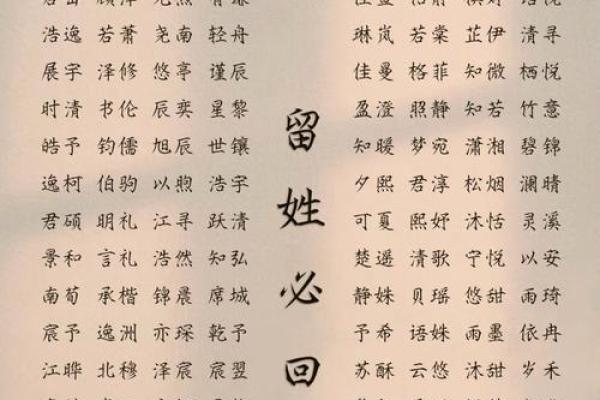 浩逸 若萧 尧南 轻舟
展宇 泽修 悠亭 谨辰
时清 书伦 辰奕 星黎
皓予 钧儒 旭辰 世镶
逸柯 伯驹 以煦 浩宇
君硕 明礼 江寻 跃清
景和 言礼 浩然 知弘
南荀 承楷 锦晨 席城
宸予 逸洲 亦琛 乾予
江晔 北穆 泽宸 宸翌
留姓必回
琳岚 若棠 芷伊 清寻
佳曼 格菲 知微 栖悦
盈澄 照静 知若 竹意
知暖 梦宛 潇湘 碧锦
夕熙 君淳 松烟 澜晴
可夏 熙妤 沐恬 灵溪
楚遥 清歌 宁悦 以安
静姝 贝瑶 悠甜 雨琦
予希 语姝 雨墨 依冉
苏酥 云悠 沐甜 岁禾